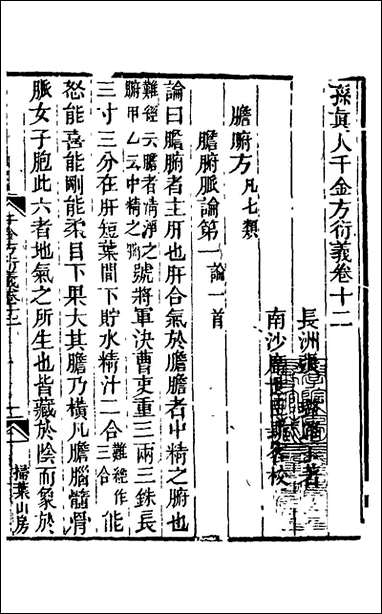 孫眞人千金方衍義卷十二
長洲張璐路玉著
南沙席世臣郢客校
膽腑方凡七類
膽腑脈論第一論一首
論曰膽腑者主肝也肝合氣於膽膽者中精之腑也
難經云膽者淸淨之腑甲乙云中精之號將軍決曹吏重三兩三銖長
三寸三分在肝短葉間下貯水精汁二合難經作三合能
怒能喜能剛能柔目下果大其膽乃橫凡膽腦髓骨
脈女子胞此六者地氣之所生也皆藏於陰而象於
千金方衍義卷十二
一
掃葉山房